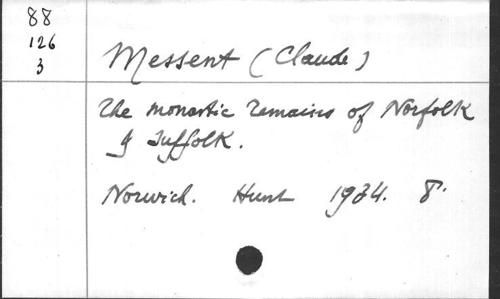 88
126
3
Messent (Claude)
The monastic remains of Norfolk
& Suffolk.
Norwich. Hunt 1934. 8°.